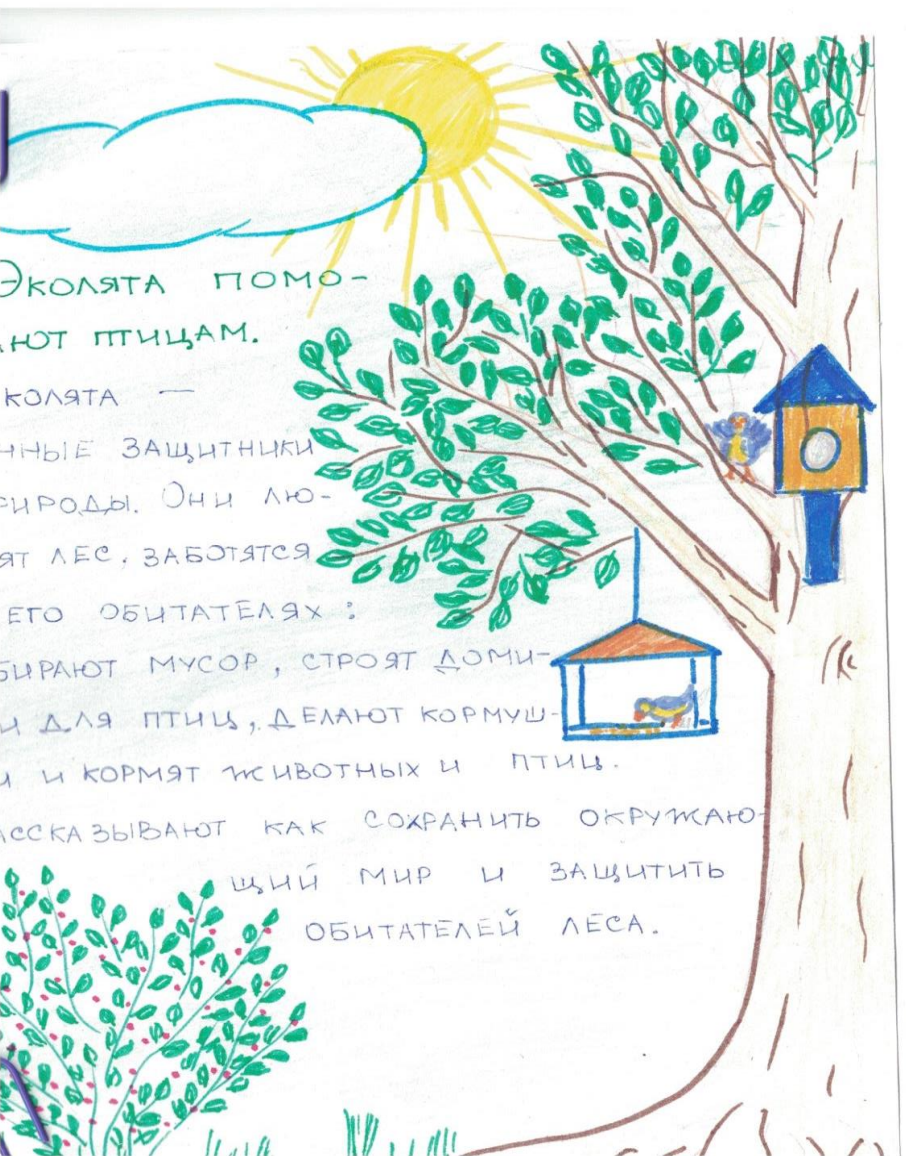 ЭКОЛЯТА ПОМО-
АЮТ ПТИЦАМ.
КОЛЯТА —
ННЫЕ ЗАЩИТНИКИ
РИРОДЫ. ОНИ ЛЮ-
ЯТ ЛЕС. ЗАБОТЯТСЯ
ЕГО ОБИТАТЕЛЯХ:
БИРАЮТ МУСОР, СТРОЯТ ДОМИ-
И ДЛЯ ПТИЦ, ДЕЛАЮТ КОРМУШ-
И И КОРМЯТ ЖИВОТНЫХ И ПТИЦ.
АССКАЗЫВАЮТ КАК СОХРАНИТЬ ОКРУЖАЮ-
ЩИЙ МИР И ЗАЩИТИТЬ
ОБИТАТЕЛЕЙ ЛЕСА.